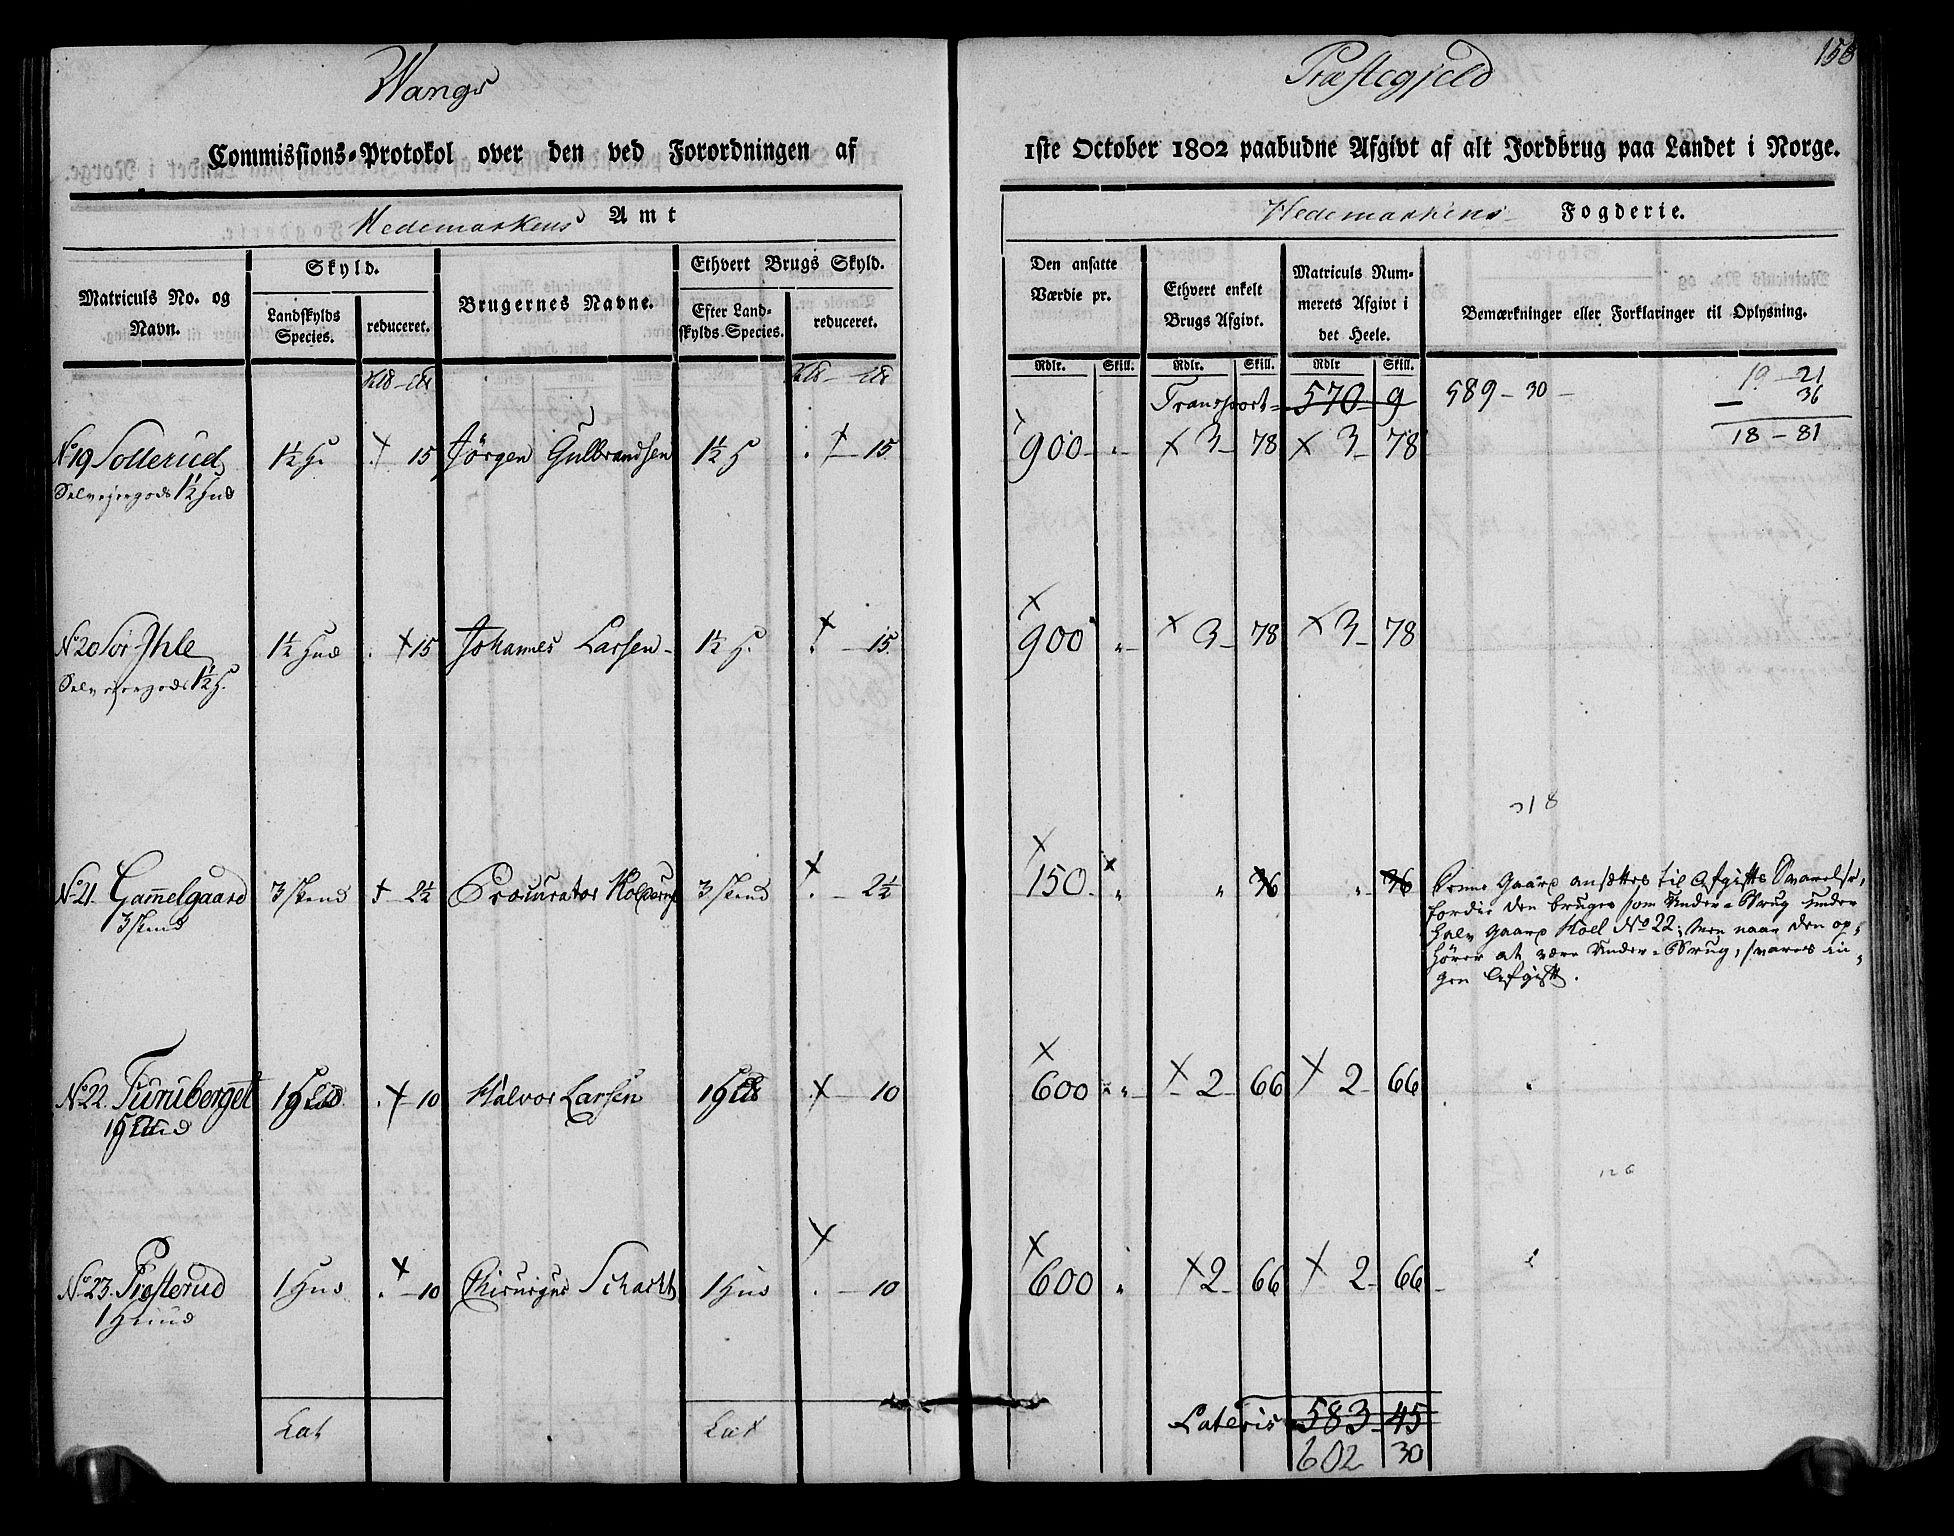 Wangs Præstegjeld 158
Commissions-Protokol over den ved Forordningen af 1ste October 1802 paabudne Afgivt af alt Jordbrug paa Landet i Norge.
Hedemarkens Amt
Hedemarkens Fogderie.
Matriculs No. og Navn.
Skyld.
Landskylds Species.
reduceret.
Brugernes Navne.
Ethvert Brugs Skyld.
Efter Landskylds-Species.
reduceret.
Den ansatte Værdie pr.
Ethvert enkelt Brugs Afgivt.
Matriculs Nummerets Afgivt i det Heele.
Bemærkninger eller Forklaringer til Oplysning.
Rdlr. Skill. Rdlr. Skill. Rdlr Skill.
Transport 570 9 589 - 30 -
19 - 21
36
18 - 81
No 19 Sollerud 1½ H. 15 Jörgen Gulbrandsen 1½ H 15 900 " 3 78 3 78
Selvejergods 1½ Hud
No 20 Sör Ihle 1½ Hud 15 Johannes Larsen 1½ H. 15 900 " 3 78 3 78
Selvejergods 1½ H.
318
No 21. Gam̄elgaard 3 skind 2½ Procurator 3 skind 2½ 150 " " 36 " 36
3 skind
Denne Gaard ansættes til Afgifts Svarelse,
fordi den bruges som Under-Brug under
halv Gaard Hoel No 22; Men naar den op-
hörer at være Under-Brug, svares in-
gen Afgift.
No 22. Furuberget 1 Hud 10 Halvor Larsen 1 Hud 10 600 " 2 66 2 66
1 Hud
126
No 23. Præsterud 1 Hud 10 Chirurgus Schacht 1 Hud 10 600 " 2 66 2 66
1 Hud
Lat Lat Lateris 583 45
602 30